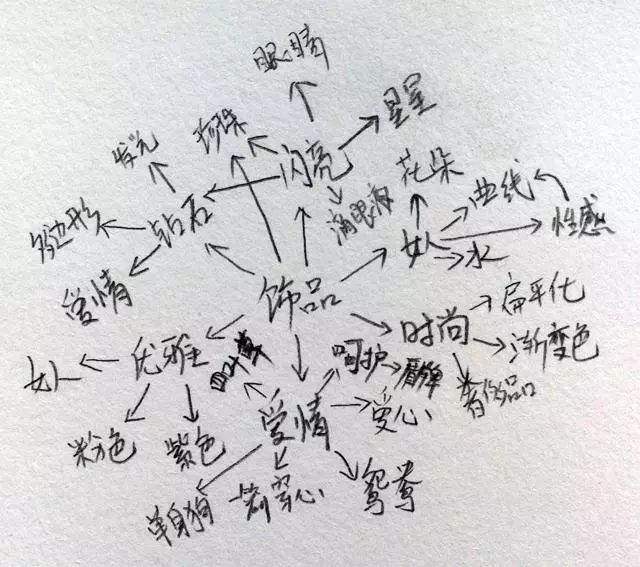 眼睛
星星
珍珠
发光
闪亮
花朵
曲线
滴眼液
性感
多边形
钻石
女人
水
爱情
饰品
扁平化
时尚
女人
优雅
四叶草
呵护
渐变色
爱心
奢侈品
爱情
粉色
紫色
单身狗
一箭穿心
鸳鸯